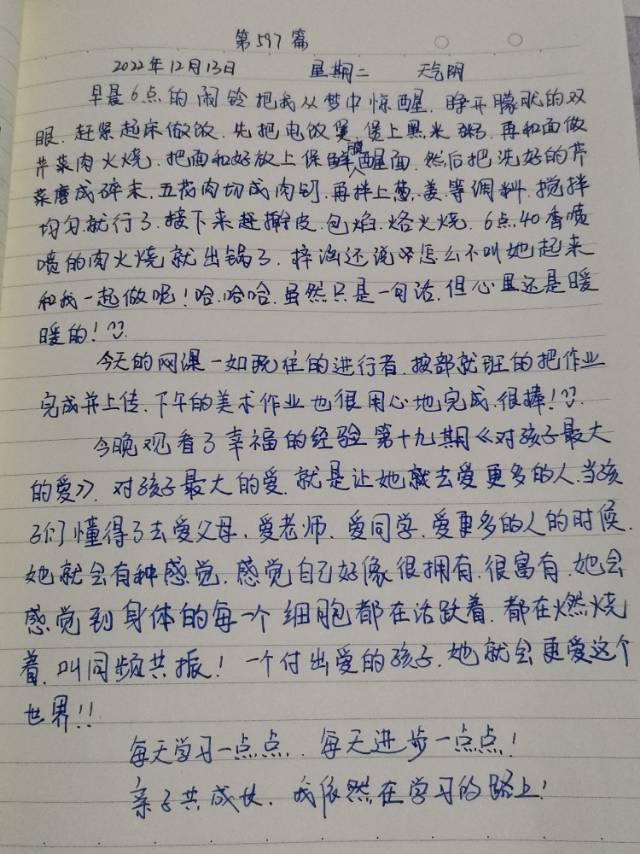 第597篇
2022年12月13日 星期二 天气阴
早晨6点的闹铃把我从梦中惊醒.睁开朦胧的双
眼.赶紧起床做饭.先把电饭煲.煲上黑米粥.再和面做
芹菜肉火烧.把面和好放上保鲜膜醒面.然后把洗好的芹
菜磨成碎末.五花肉切成肉钉.再拌上葱.姜.等调料.搅拌
均匀就行了.接下来赶擀皮.包焰.烙火烧.6点40香喷
喷的肉火烧就出锅了.梓涵还说咋怎么不叫她起来
和我一起做呢!哈.哈哈.虽然只是一句话.但心里还是暖
暖的!
今天的网课一如既往的进行着.按部就班的把作业
完成并上传.下午的美术作业也很用心地完成.很棒!
今晚观看了幸福的经验第十九期《对孩子最大
的爱》.对孩子最大的爱.就是让她就去爱更多的人.当孩
子们懂得了去爱父母.爱老师.爱同学.爱更多的人的时候.
她就会有种感觉.感觉自己好像很拥有.很富有.她会
感觉到身体的每一个细胞都在活跃着.都在燃烧
着.叫同频共振!一个付出爱的孩子.她就会更爱这个
世界!!
每天学习一点点.每天进步一点点!
亲子共成长.我依然在学习的路上!